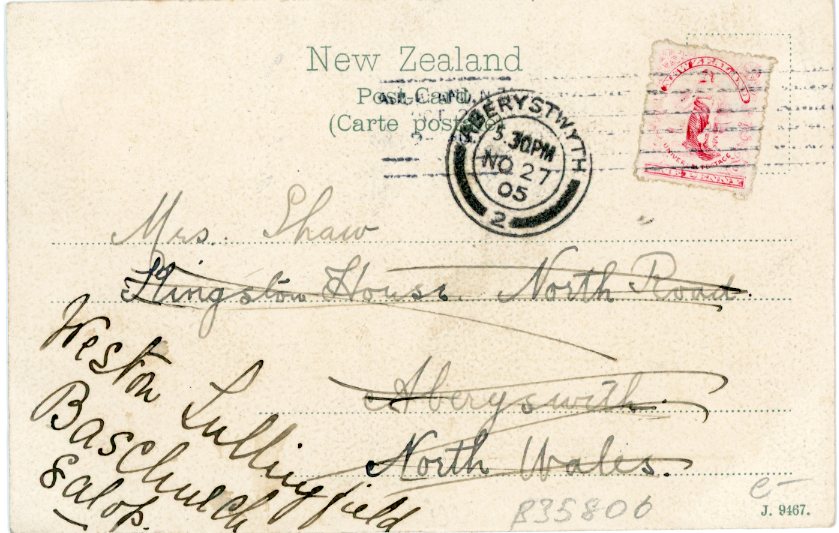 New Zealand
Post Card.
(Carte postale)
ABERYSTWYTH
5.30PM
NO 27
05
2
NEW ZEALAND
Mrs. Shaw
Kingston House. North Road.
Aberyswith.
North Wales.
Weston Lullingfield
Baschurch
Salop.
B35806
e-
J. 9467.